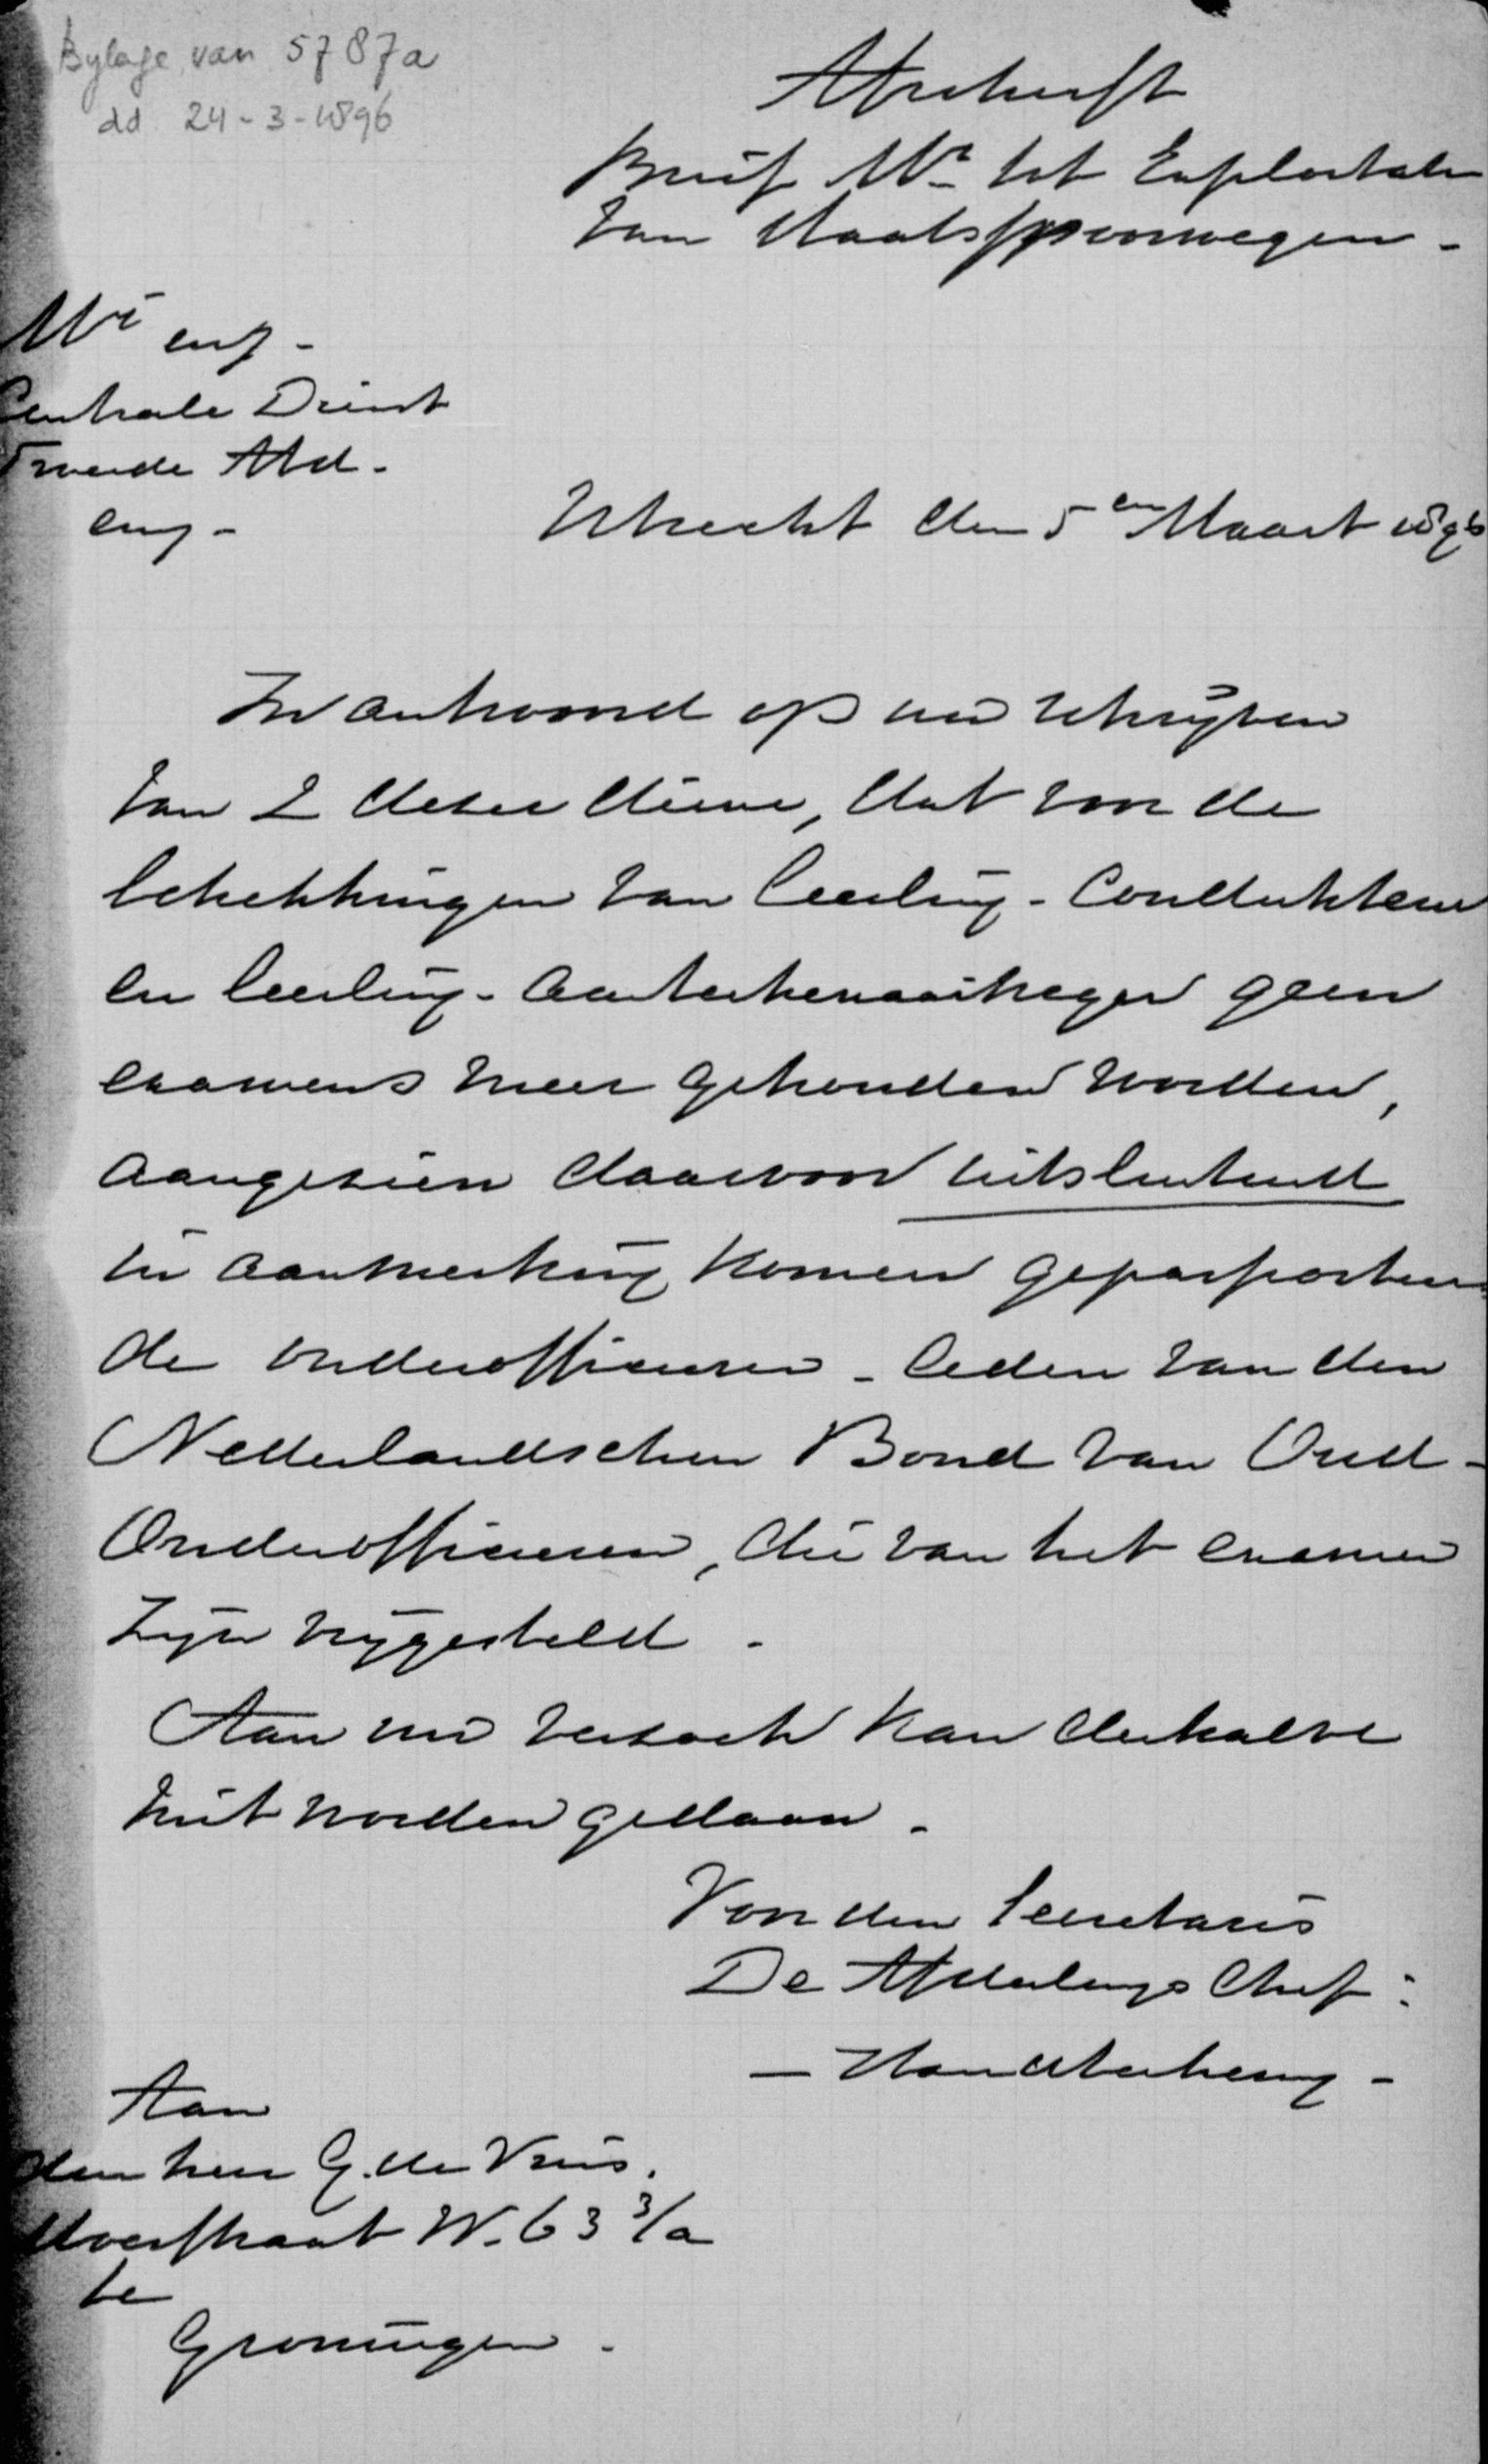 Bylage van 5787a
dd. 24-3-1896
Afschrift
Brief Mij tot Exploitatie
van Staatsspoorwegen -
Mij enz -
Centrale Dienst
Tweede Afd.
enz -
Utrecht den 5en Maart 1896
In antwoord op uw schrijven
van 2 dezer diene, dat voor de
betrekkingen van leerling-Conducteur
en leerling-aanteekenaar geen
examens meer gehouden worden,
aangezien daarvoor uitsluitend
in aanmerking komen gepasporteer
de onderofficieren - leden van den
Nederlandschen Bond van Oud-
Onderofficieren, die van het examen
zijn vrijgesteld.
Aan uw verzoek kan derhalve
niet worden gedaan.
Voor den Secretaris
De Afdeelings Chef:
Aan
den heer G. de Vries.
W. 63 3/a
te
Groningen.